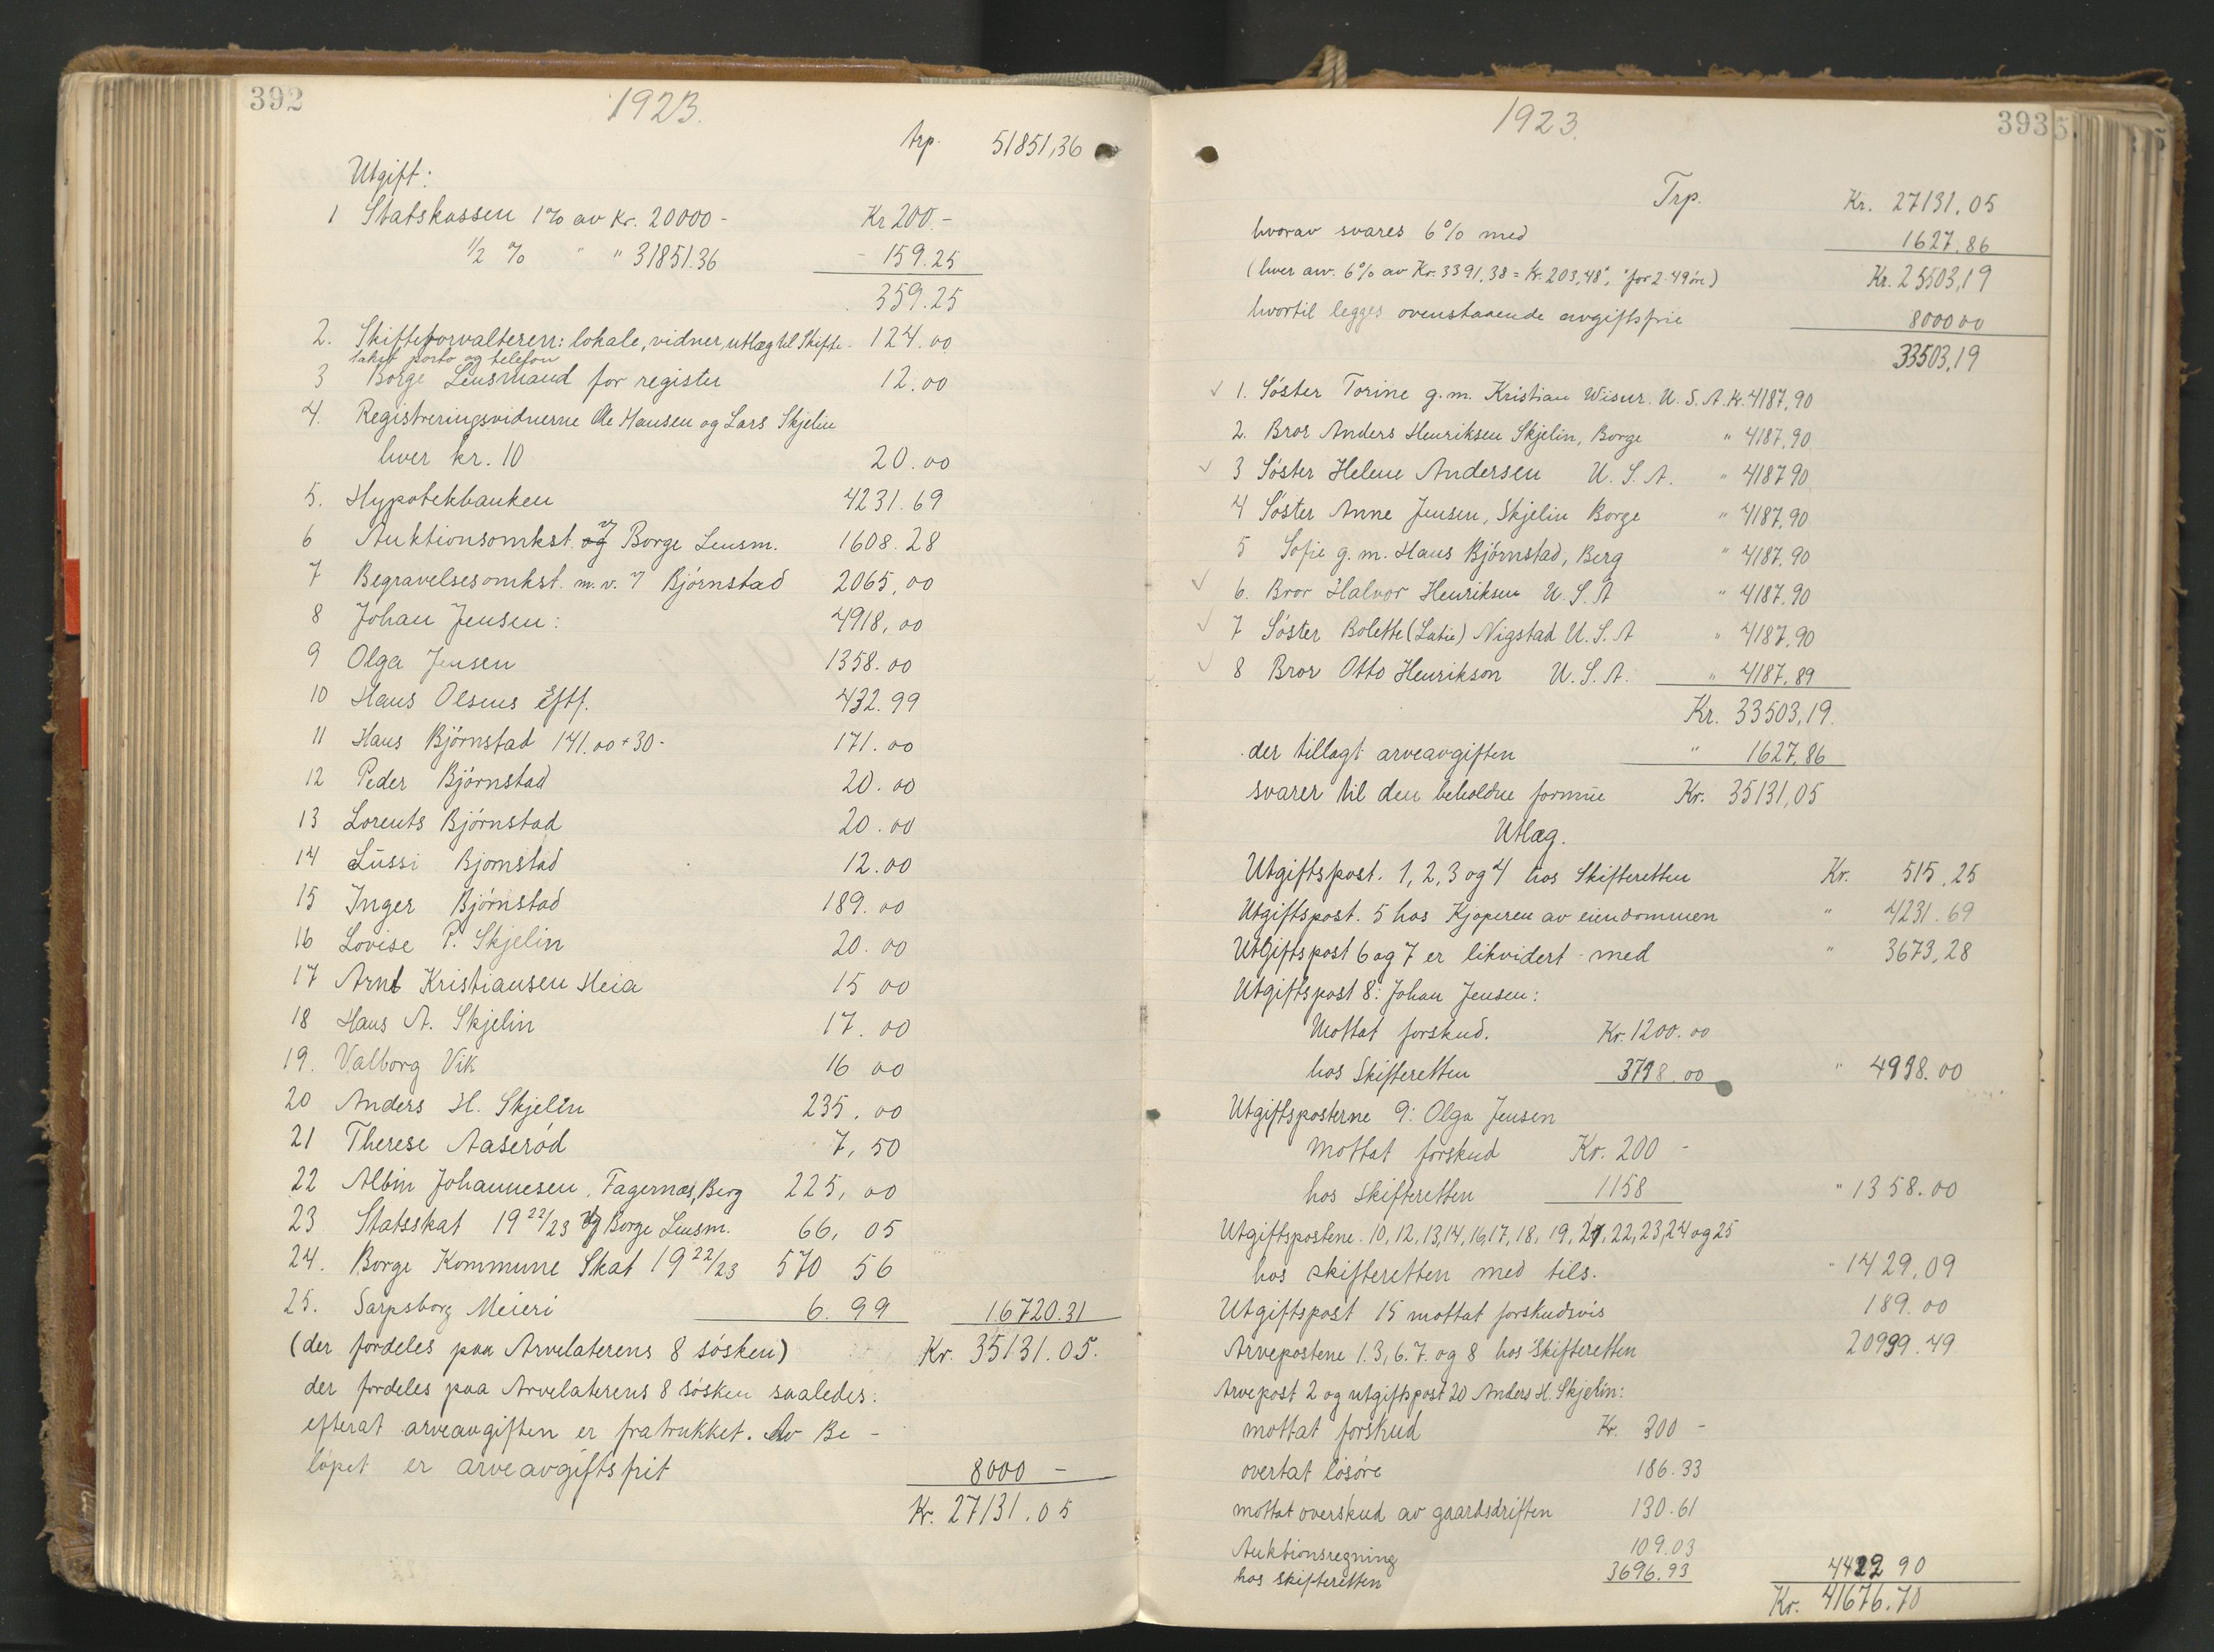 392
1923.
Trp. 51851,36
Utgift:
1 Statskassen 1% av kr. 20000 - Kr 200.-
1/2 % " " 31851.36 - 159.25
359.25
2. Skifteforvalteren: lokale, vidner, utlæg til Skifte- 124.00
takst, porto og telefon
3 Borge Lensmand for register 12.00
4. Registreringsvidnerne Ole Hansen og Lars Skjelin
hver kr. 10 20.00
5. Hypotekbanken 4231.69
6 Auktionsomkst. v/ Borge Lensm. 1608.28
7 Begravelsesomkst. m.v. v/ Bjørnstad 2065,00
8 Johan Jensen: 4918,00
9 Olga Jensen 1358.00
10 Hans Olsens Eftf. 432.99
11 Hans Bjørnstad 141.00 + 30- 171.00
12 Peder Bjørnstad 20.00
13 Lorents Bjørnstad 20.00
14 Lussi Bjørnstad 12.00
15 Inger Bjørnstad 189.00
16 Lovise P. Skjelin 20.00
17 Arnt Kristiansen Heia 15 00
18 Hans A. Skjelin 17.00
19. Valborg Vik 16 00
20 Anders H. Skjelin 235.00
21 Therese Aaserød 7,50
22 Albin Johannesen, Fagernæs, Berg 225,00
23 Statsskat 19 22/23 v/ Borge Lensm. 66,05
24. Borge Kommune Skat 19 22/23 570 56
25. Sarpsborg Meieri 6.99 16720.31
(der fordeles paa Arvelaterens 8 søsken) Kr. 35131.05.
der fordeles paa Arvelaterens 8 søsken saaledes:
efterat arveavgiften er fratrukket. Av Be-
løpet er arveavgiftsfrit 8000 -
Kr. 27131.05
393
1923.
Trp. Kr. 27131.05
hvorav svares 6% med 1627.86
(hver arv. 6% av Kr. 3391,38 = kr. 203,48", "for 2. 49 øre) Kr. 25503,19
hvortil legges ovenstaaende avgiftsfrie 8000 00
33503,19
✓ 1. Søster Torine g.m. Kristian Wisur. U.S.A. kr. 4187,90
2. Bror Anders Henriksen Skjelin, Borge " 4187,90
✓ 3 Søster Helene Andersen U.S.A. " 4187 90
4 Søster Anne Jensen, Skjelin Borge " 4187,90
5 Sofie g.m. Hans Bjørnstad, Berg " 4187,90
✓ 6. Bror Halvor Henriksen U.S.A " 4187,90
✓ 7 Søster Bolette (Lutie) Nigstad U.S.A " 4187,90
✓ 8 Bror Otto Henrikson U.S.A. " 4187,89
Kr. 33503,19.
der tillagt arveavgiften " 1627,86
svarer til den beholdne formue Kr. 35131,05
Utlæg.
Utgiftspost. 1, 2, 3 og 4 hos Skifteretten Kr. 515,25
Utgiftspost. 5 hos Kjøperen av eiendommen " 4231.69
Utgiftspost 6 og 7 er likvidert med " 3673,28
Utgiftspost 8: Johan Jensen:
Mottat forskud. Kr. 1200.00
hos Skifteretten 3718.00 " 4918.00
Utgiftsposterne 9: Olga Jensen
Mottat forskud Kr. 200 -
hos skifteretten 1158 " 1358.00
Utgiftspostene. 10, 12, 13, 14, 16, 17, 18, 19, 21, 22, 23, 24 og 25
hos skifteretten med tils. " 1429,09
Utgiftspost 15 mottat forskudsvis 189.00
Arvepostene 1. 3, 6. 7. og 8 hos Skifteretten 20939.49
Arvepost 2 og utgiftspost 20 Anders H. Skjelin:
mottat forskud Kr. 300 -
overtat løsøre 186.33
mottat overskud av gaardsdriften 130.61
Auktionsregning 109.03
hos skifteretten 3696.93 4422 90
Kr. 41676.70